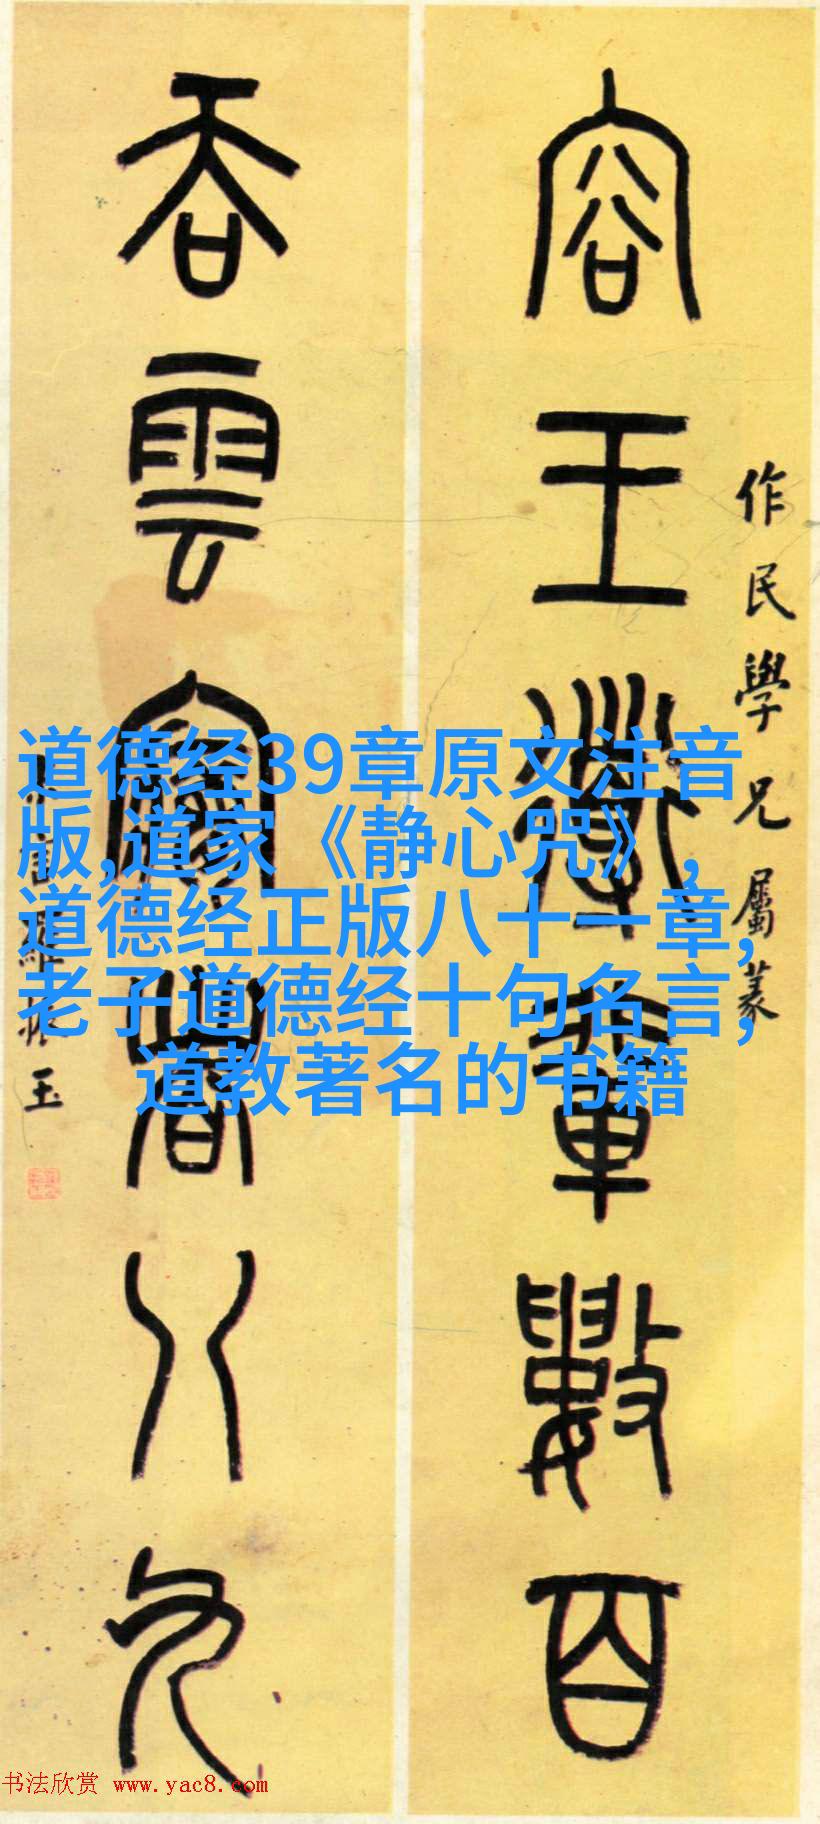 容王導輩數百
作民學兄屬篆
吞雲夢者八九
羅振玉
道德经39章原文注音
版,道家《静心咒》,
道德经正版八十一章,
老子道德经十句名言,
道教著名的书籍
书法欣赏 www.yac8.com